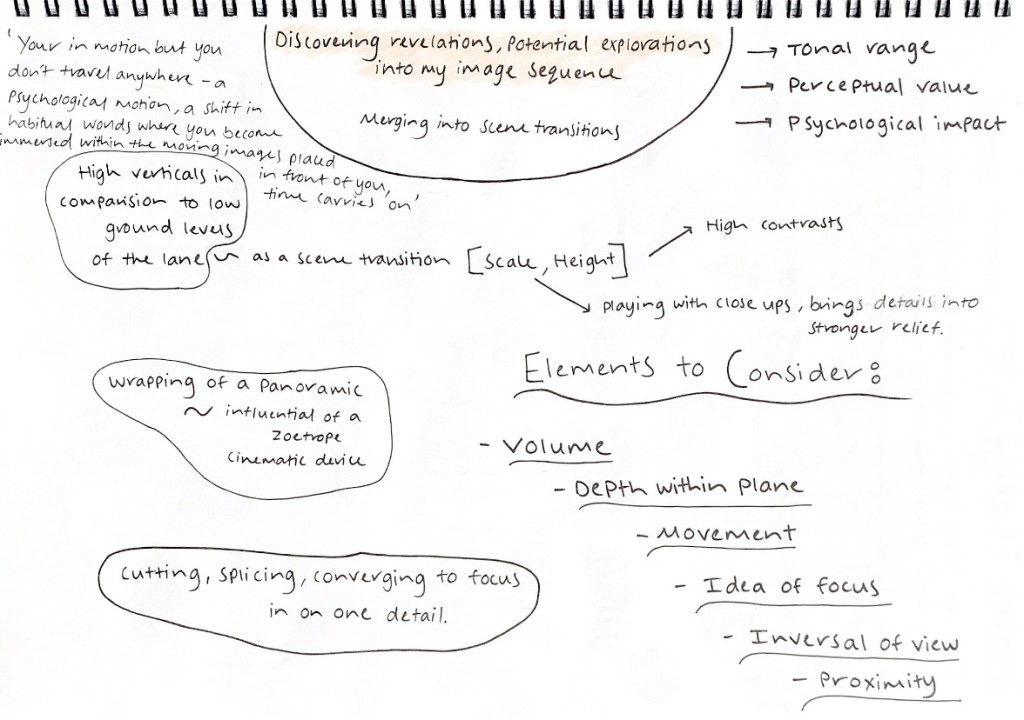 'Your in motion but you
don't travel anywhere - a
psychological motion, a shift in
habitual worlds where you become
immersed within the moving images placed
in front of you,
time carries 'on'
Discovering revelations, potential explorations
into my image sequence
Merging into scene transitions
→ Tonal range
→ Perceptual value
→ Psychological impact
High verticals in
comparision to low
ground levels
of the lane ~ as a scene transition [Scale, Height]
High contrasts
Playing with close ups, brings details into
stronger relief.
Wrapping of a panoramic
~ influential of a
zoetrope
cinematic device
Cutting, splicing, converging to focus
in on one detail.
Elements to Consider:
- Volume
- Depth within plane
- Movement
- Idea of focus
- Inversal of view
- Proximity